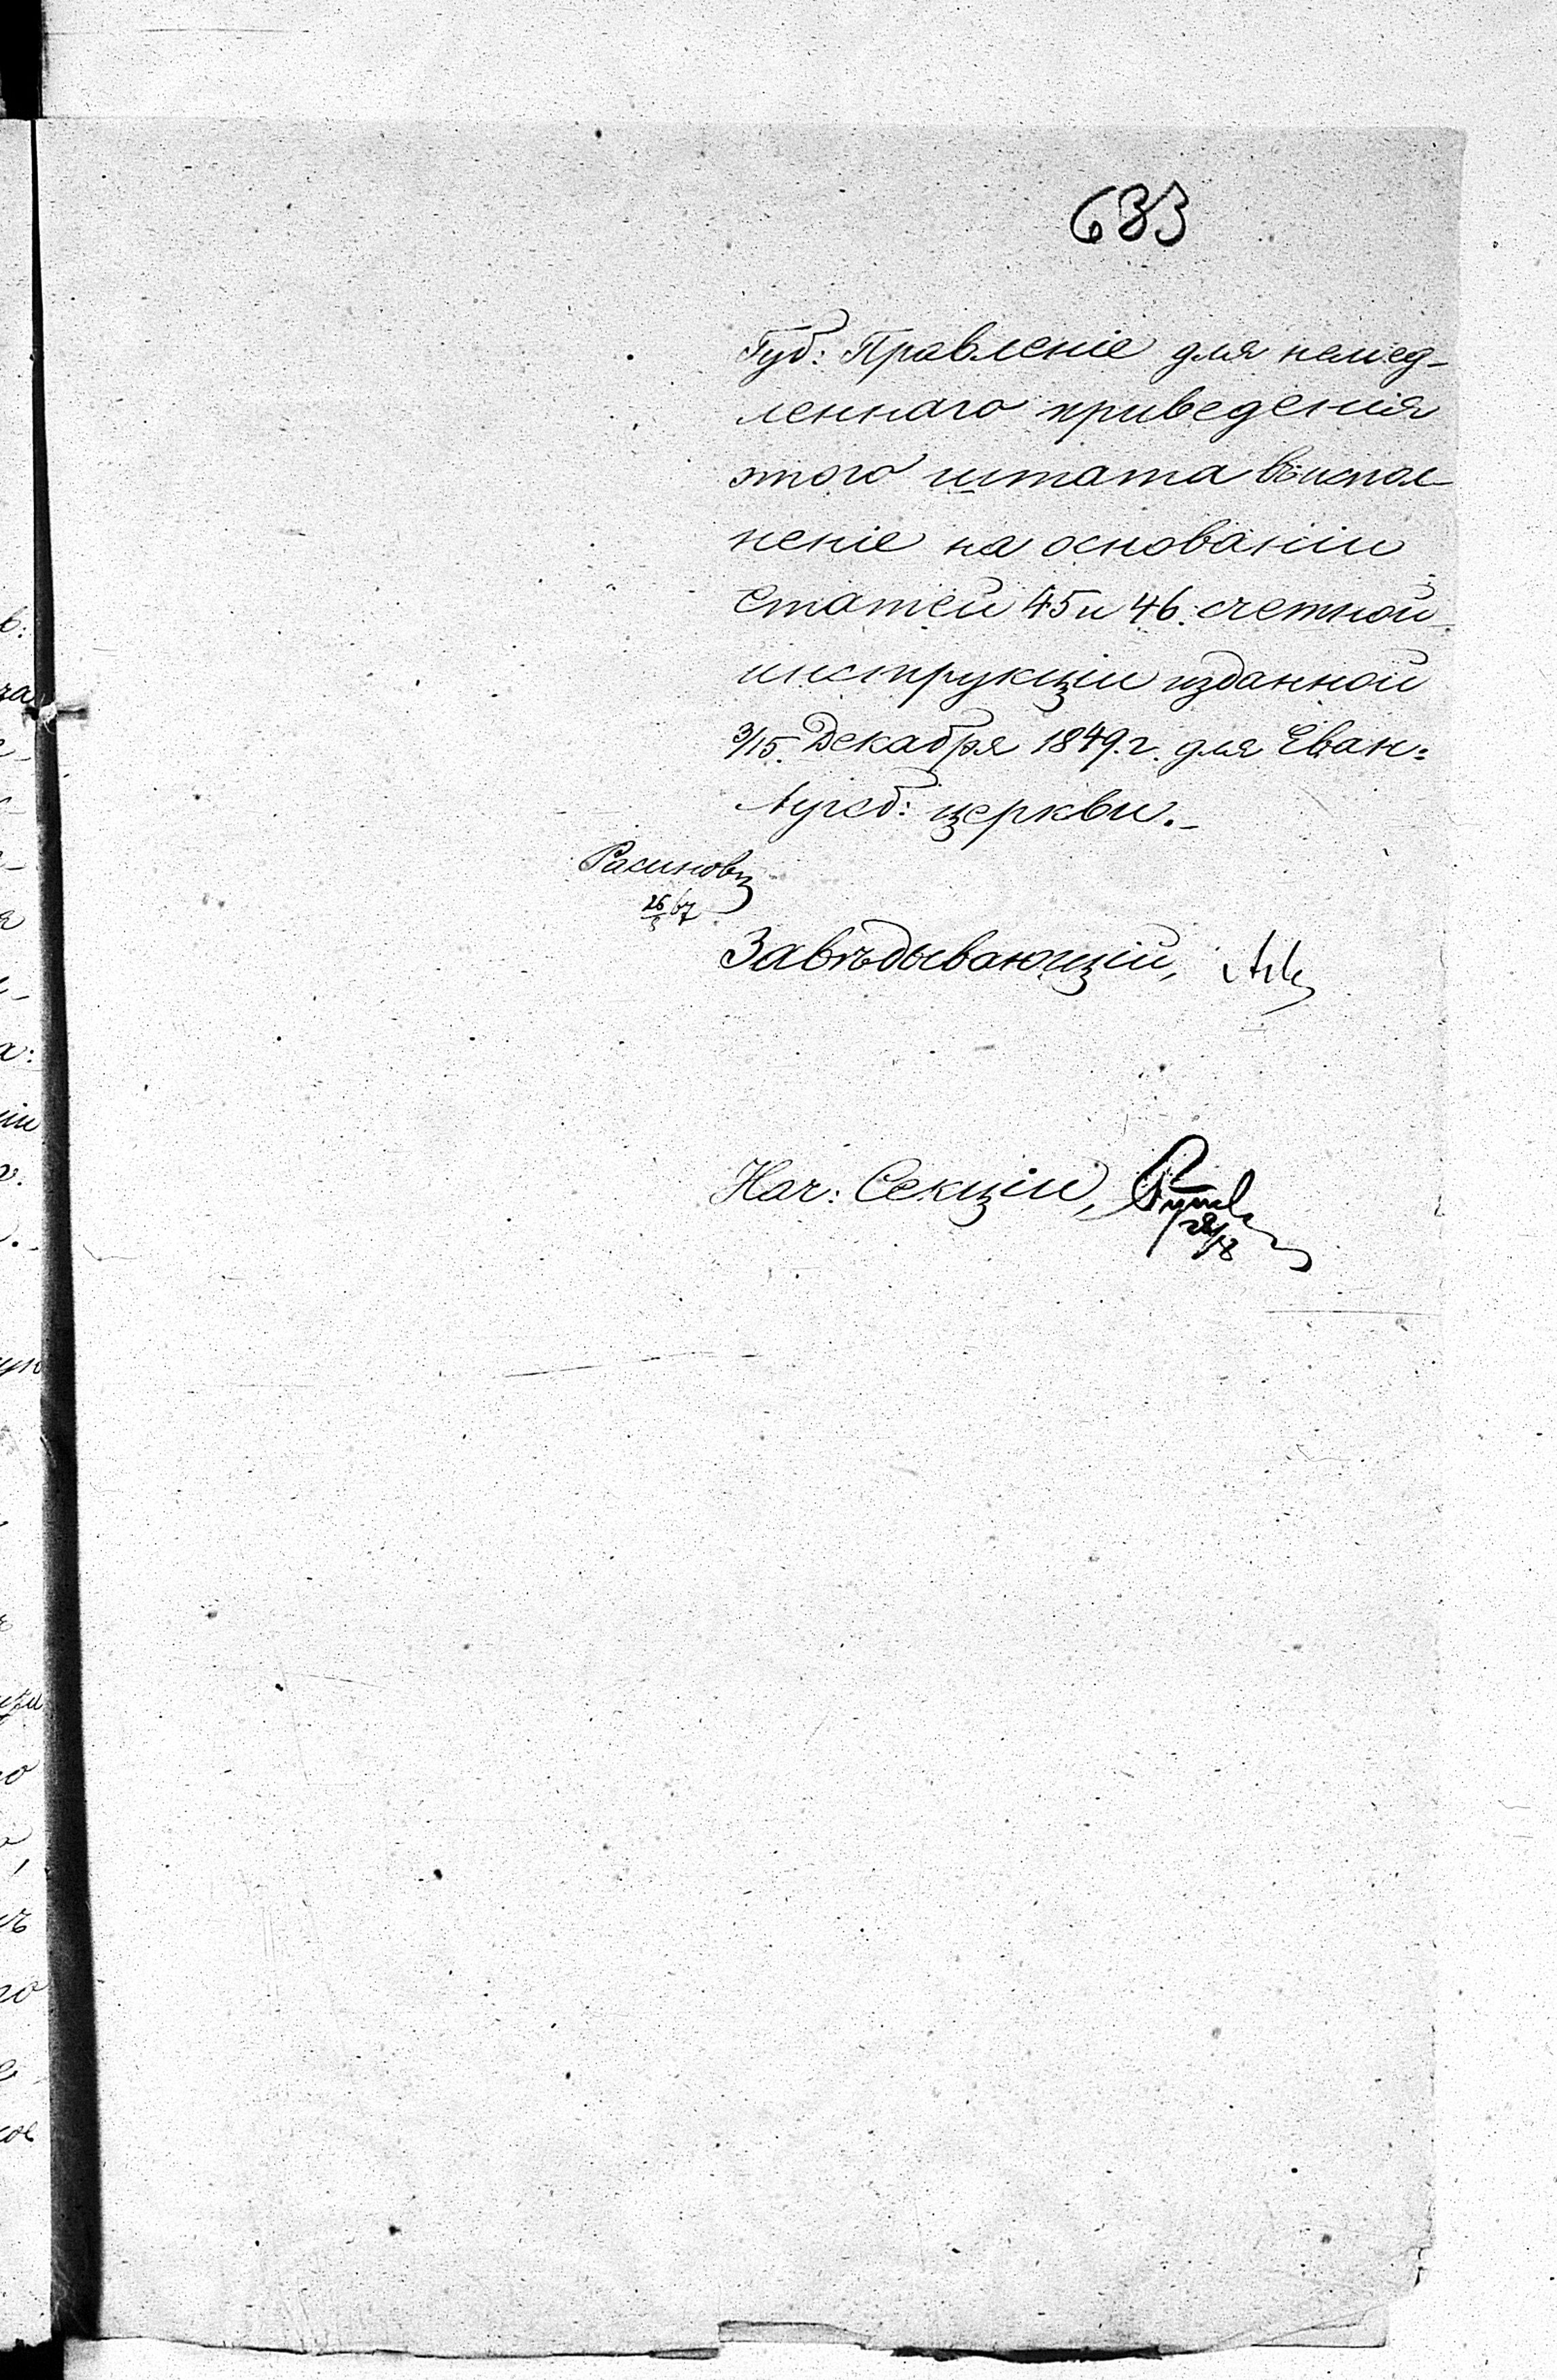 683
Губ: Правленіе для немед-
леннаго приведенія
этого штата въ испол-
неніе на основаніи
Статей 45 и 46. счетной
инструкціи изданной
3/15. Декабря 1849. г. для Еван:
Аугсб: церкви.-
26/8 67
Завѣдывающій,
Нач: Секціи,